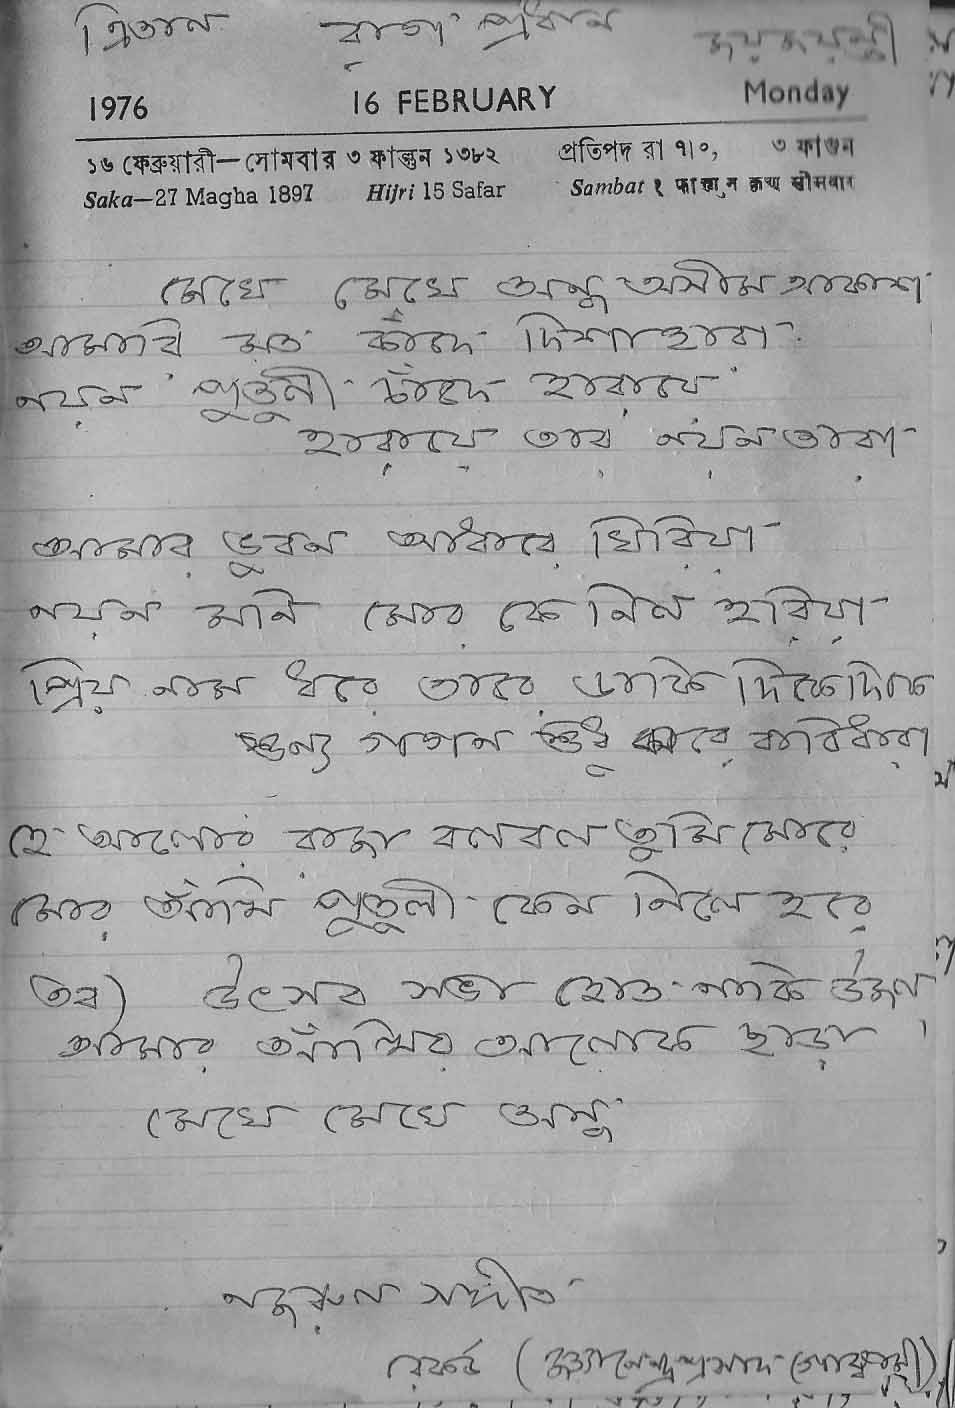 ত্রিতাল রাগ প্রধান জয়জয়ন্তী
1976 16 FEBRUARY Monday
১৬ ফেব্রুয়ারী—সোমবার ৩ ফাল্গুন ১৩৮২ প্রতিপদ রা ৭।০, ৩ ফাগুন
Saka—27 Magha 1897 Hijri 15 Safar Sambat १ फाल्गुन कृष्ण सोमवार
মেঘে মেঘে অন্ধ অসীম আকাশ
আমারি মত কাঁদে দিশাহারা
নয়ন পুত্তুলী চাঁদে হারায়ে
হারায়ে তার নয়নতারা
আমার ভুবন আধারে ঘিরিয়া
নয়ন মনি মোর কে নিল হরিয়া
প্রিয় নাম ধরে তারে ডাকি দিকেদিকে
শুন্য গগনে শুধু ঝরে বারিধারা
হে আলোর রাজা বলবল তুমি মোরে
মোর আঁখি পুত্তুলী কেন নিলে হরে
তব) উৎসব সভা হোত নাকি উজল
আমার আঁখির আলোক ছাড়া
মেঘে মেঘে অন্ধ
নজরুল সঙ্গীত
রেকর্ড (জ্ঞানেন্দ্রপ্রসাদ গোস্বামী)